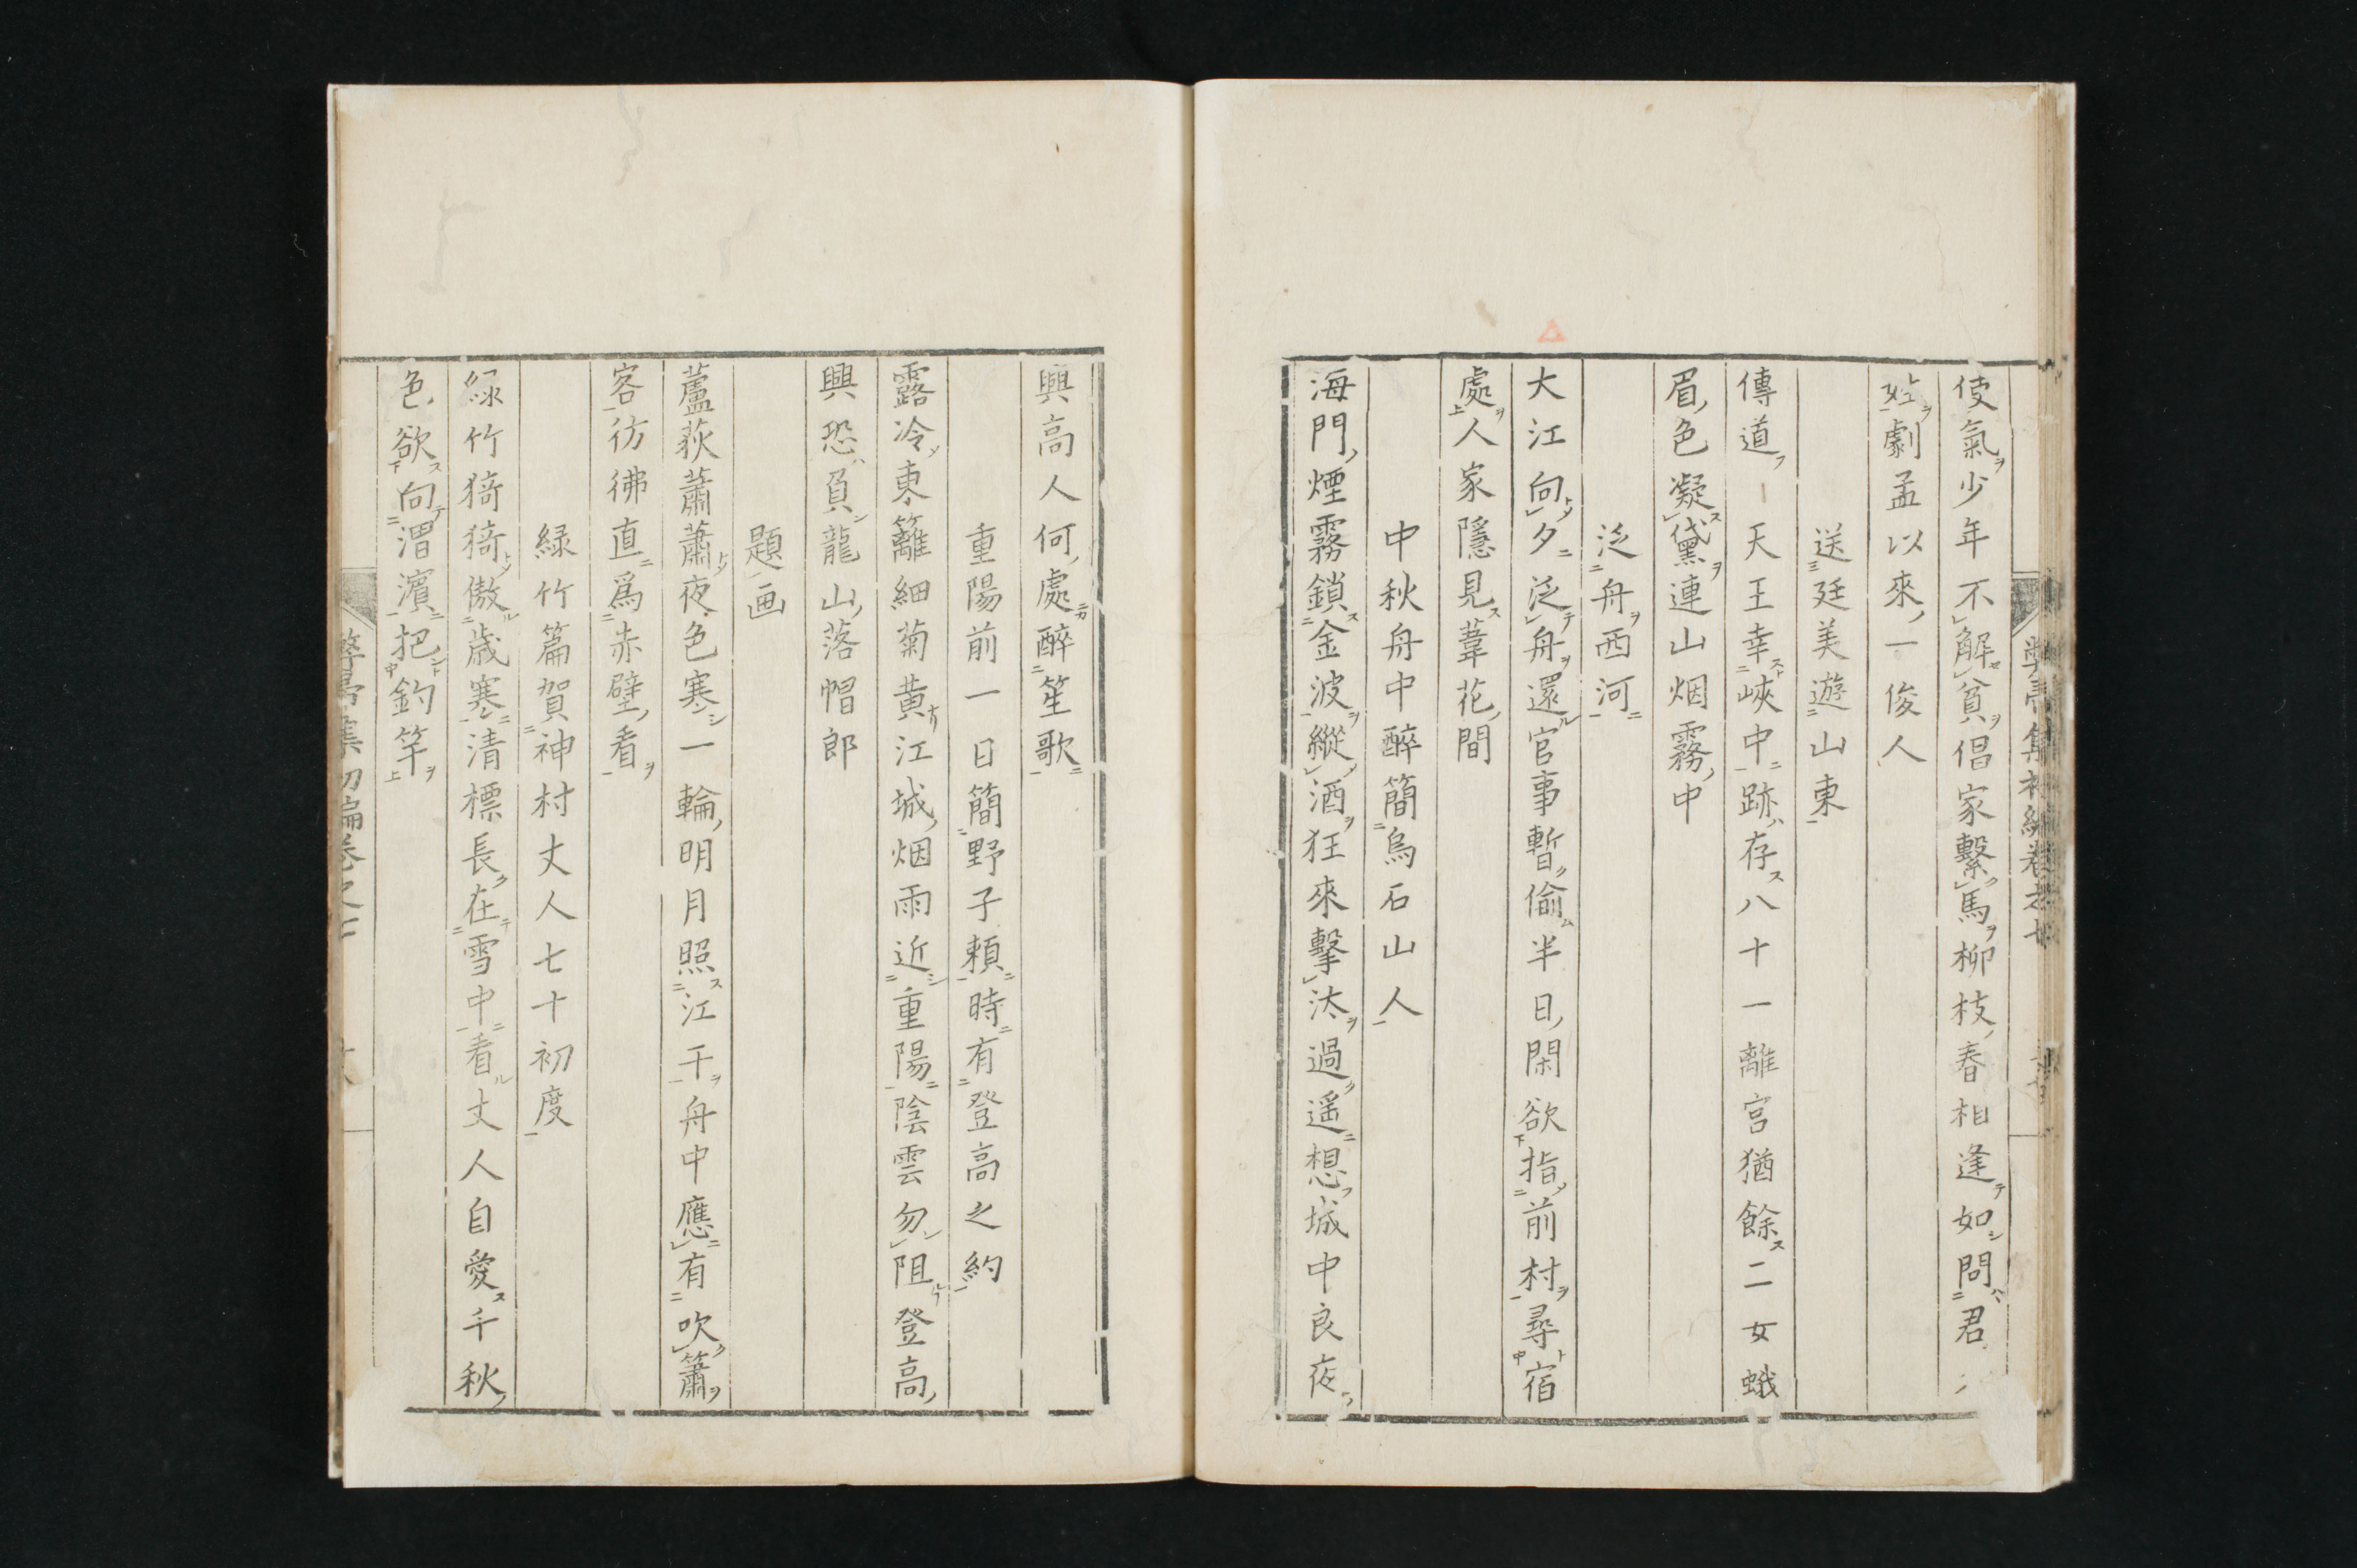 使氣少年不解貧倡家繫馬柳枝春相逢如問君
姓劇孟以來一俊人
送廷美遊山東
傳道天王幸峽中跡存八十一離宮猶餘二女蛾
眉色凝黛連山烟霧中
泛舟西河
大江向夕泛舟還官事暫偷半日閑欲指前村尋宿
處人家隱見葦花間
中秋舟中醉簡烏石山人
海門煙霧鎖金波縱酒狂來擊汰過遥想城中良夜
興高人何處醉笙歌
重陽前一日簡野子賴時有登高之約
露冷東籬細菊黄江城烟雨近重陽陰雲勿阻登高
興恐負龍山落帽郎
題画
蘆荻蕭蕭夜色寒一輪明月照江干舟中應有吹簫
客彷彿直爲赤壁看
緑竹篇賀神村丈人七十初度
緑竹猗猗傲歳寒清標長在雪中看丈人自愛千秋
色欲向渭濱把釣竿
集初編卷之七